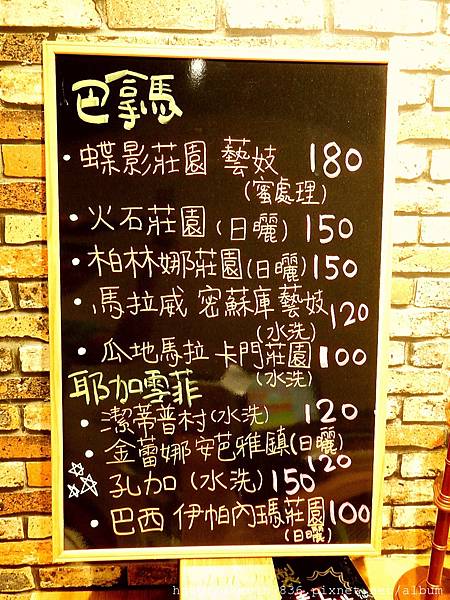 巴拿馬
• 蝶影莊園 藝妓 180
(蜜處理)
• 火石莊園(日曬) 150
• 柏林娜莊園(日曬) 150
• 馬拉威 密蘇庫藝妓 120
(水洗)
• 瓜地馬拉 卡門莊園 100
(水洗)
耶加雪菲
• 潔蒂普村(水洗) 120
• 金蕾娜安芭雅鎮(日曬)
120
孔加(水洗) 150
• 巴西 伊帕內瑪莊園 100
(日曬)